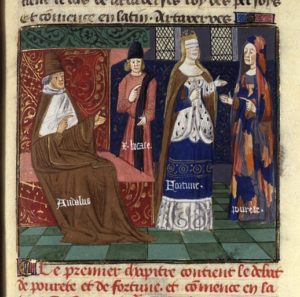 et comence en latin. Artaverxes
B[occace]
Andalus
Fortune.
pourete
Le premier chapitre contient le debat
de pourete et de fortune. et comence en la